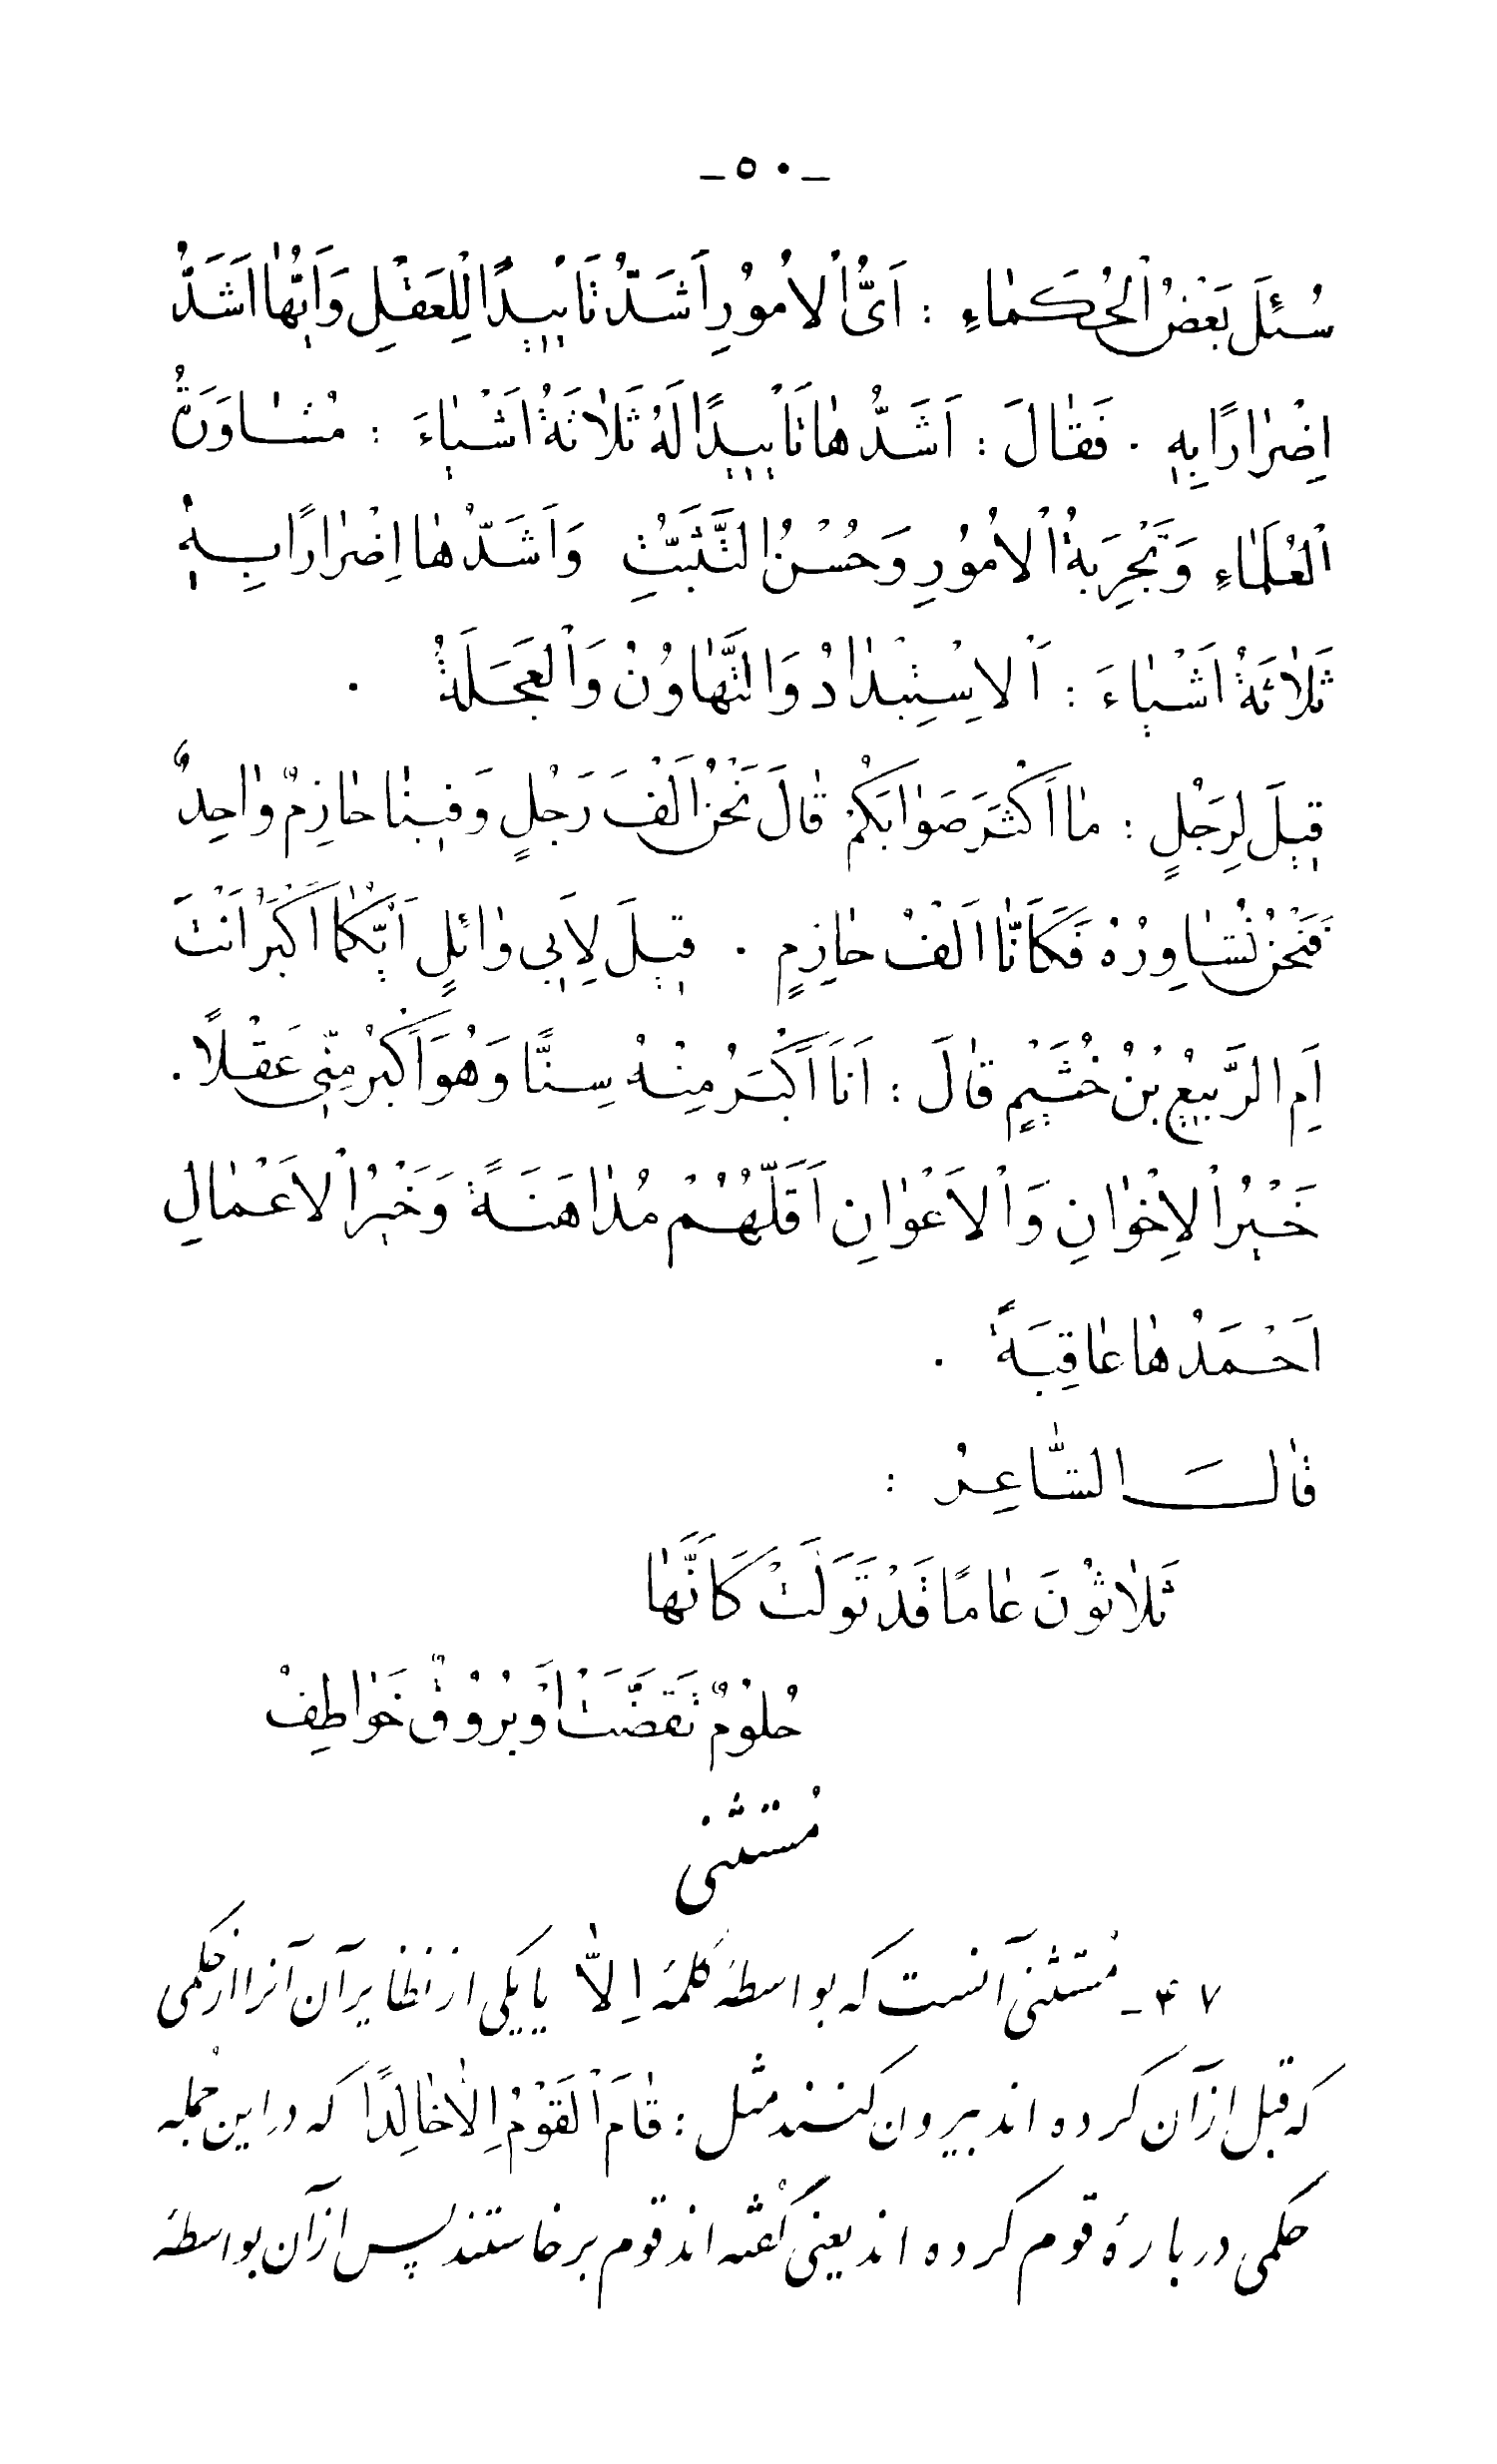 -۵۰-
سُئِلَ بَعْضُ الْحُكَمٰاءِ : اَیُّ الْاُمُوْرِ اَشَدُّ تَاْیٖیدًا لِلْعَقْلِ وَاَیُّهٰا اَشَدُّ
اِضْرٰارًا بِهٖ . فَقٰالَ : اَشَدُّهٰا تَاْیٖیدًا لَهُ ثَلٰاثَةُ اَشْیٰاءَ : مُشٰاوَرَةُ
الْعُلَمٰاءِ وَتَجْرِبَةُ الْاُمُوْرِ وَحُسْنُ التَّثَبُّتِ وَاَشَدُّهٰا اِضْرٰارًا بِهٖ
ثَلٰاثَةُ اَشْیٰاءَ : اَلْاِسْتِبْدٰادُ وَالتَّهٰاوُنُ وَالْعَجَلَةُ .
قٖیلَ لِرَجُلٍ : مٰا اَكْثَرَ صَوٰابَكُمْ قٰالَ نَحْنُ اَلْفُ رَجُلٍ وَفٖینٰا حٰازِمٌ وٰاحِدٌ
فَنَحْنُ نُشٰاوِرُهُ فَكَاَنّٰا اَلْفُ حٰازِمٍ . قٖیلَ لِاَبٖی وٰائِلٍ اَیُّكُمٰا اَكْبَرُ اَنْتَ
اَمِ الرَّبٖیعُ بْنُ خُثَیْمٍ قٰالَ : اَنَا اَكْبَرُ مِنْهُ سِنًّا وَهُوَ اَكْبَرُ مِنّٖی عَقْلًا .
خَیْرُ الْاِخْوٰانِ وَالْاَعْوٰانِ اَقَلُّهُمْ مُدٰاهَنَةً وَخَیْرُ الْاَعْمٰالِ
اَحْمَدُهٰا عٰاقِبَةً .
قٰالَ الشّٰاعِرُ :
ثَلٰاثُوْنَ عٰامًا قَدْ تَوَلَتْ كَاَنَّهٰا
حُلُوْمٌ تَقَضَّتْ اَوْ بُرُوْقٌ خَوٰاطِفُ
مُستثنی
۴۷ - مُستثنی آنست که بواسطهٔ کلمهٔ اِلاّٰ یا یکی از نظایر آن آنرا از حکمی
که قبل از آن کرده اند بیرون کنند مثل : قٰامَ الْقَوْمُ اِلاّٰ خٰالِدًا که در این جُمله
حکمی دربارهٔ قوم کرده اند یعنی گفته اند قوم برخاستند پس از آن بواسطهٔ